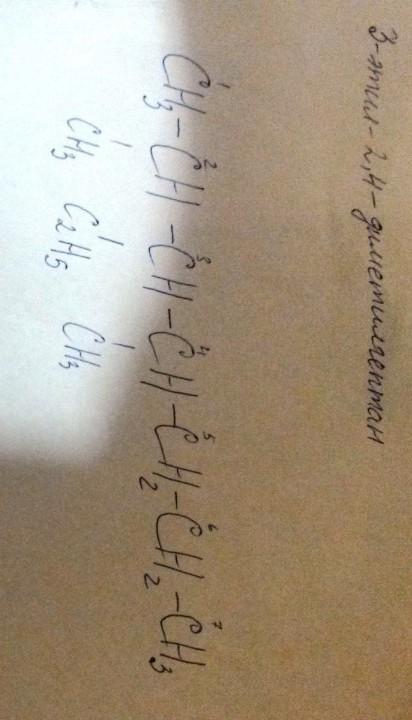 3-этил-2,4-диметилгептан
1 2 3 4 5 6 7
CH3-CH-CH-CH-CH2-CH2-CH3
| | |
CH3 C2H5 CH3